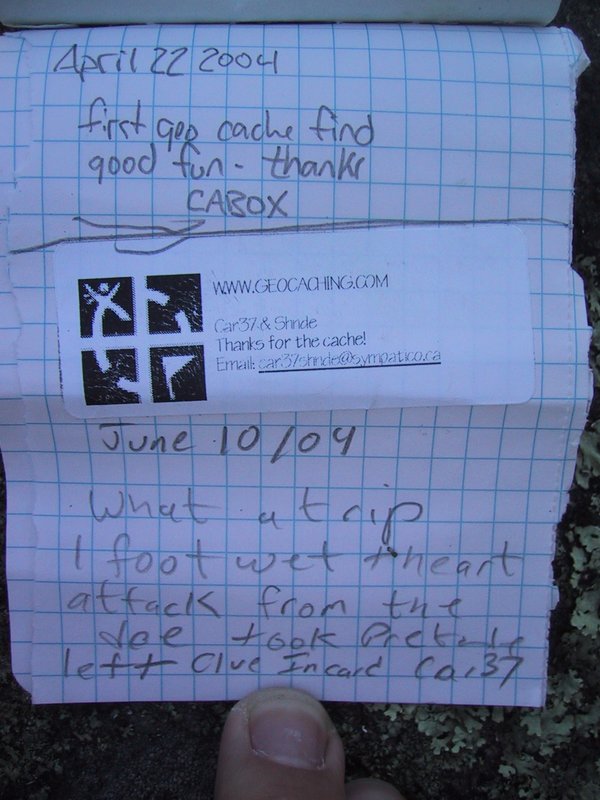 April 22 2004
first geo cache find
good fun - thanks
CABOX
WWW.GEOCACHING.COM
Car37 & Shnde
Thanks for the cache!
Email: car37shnde@sympatico.ca
June 10/04
What a trip
1 foot wet + heart
attack from the
took
left Clue In card Car37